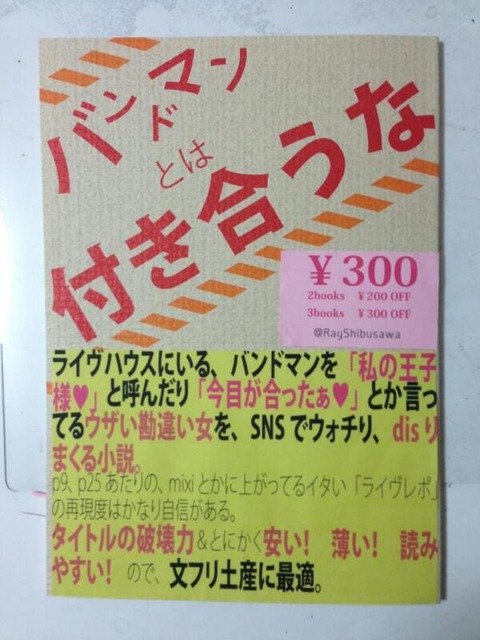 バンドマン
とは
付き合うな
￥300
2books ￥200 OFF
3books ￥300 OFF
@RayShibusawa
ライヴハウスにいる、バンドマンを「私の王子
様♥」と呼んだり「今目が合ったぁ♥」とか言っ
てるウザい勘違い女を、SNSでウォチり、disり
まくる小説。
p9、p25あたりの、mixiとかに上がってるイタい「ライヴレポ」
の再現度はかなり自信がある。
タイトルの破壊力&とにかく安い！ 薄い！ 読み
やすい！ ので、文フリ土産に最適。